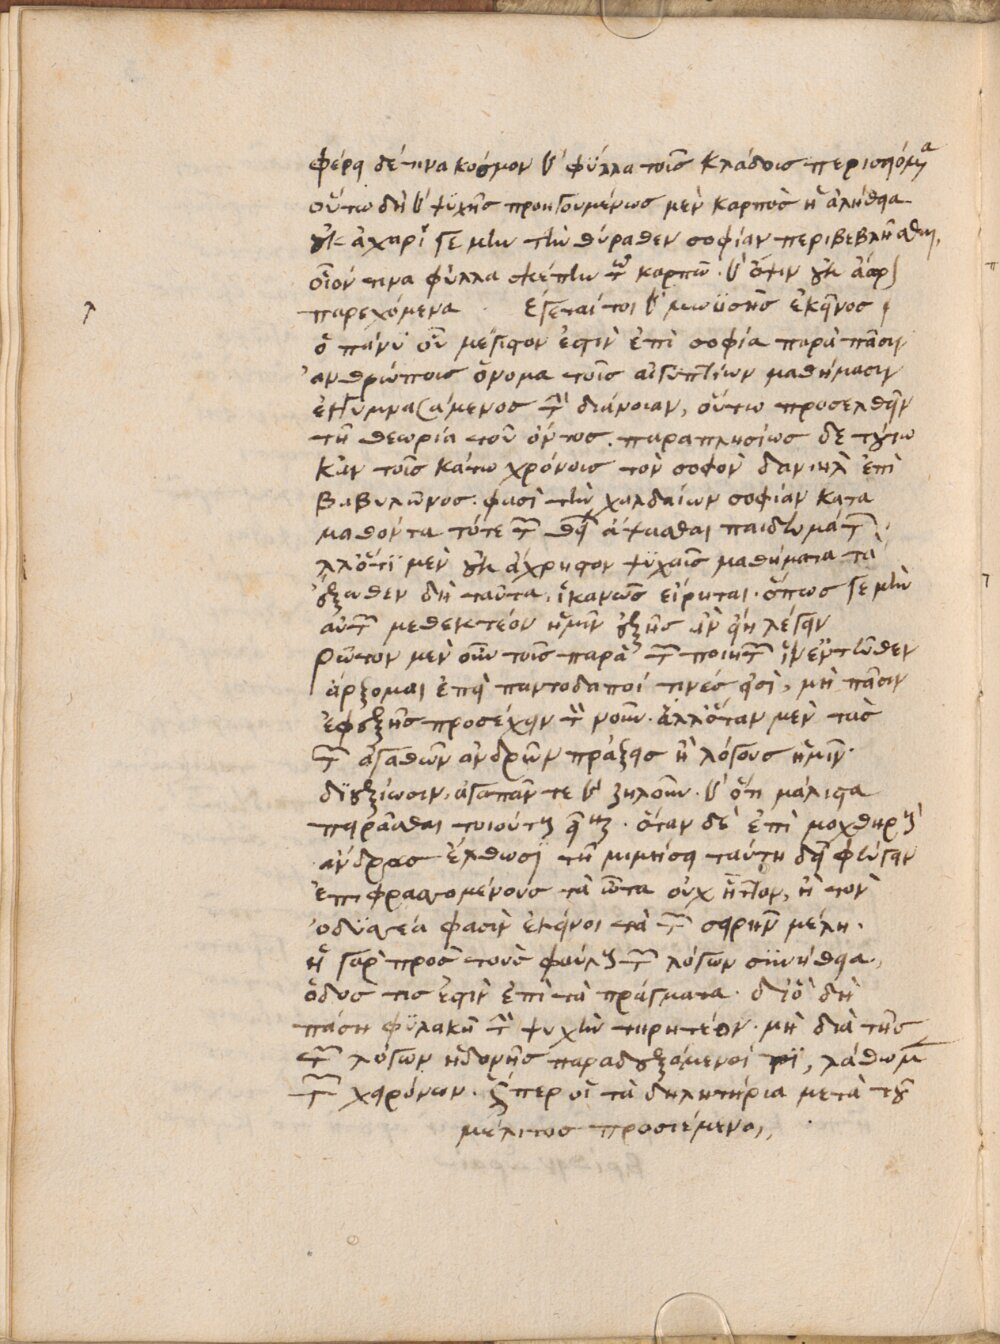 φέρει δέ τινα κόσμον καὶ φύλλα τοῖς κλάδοις περισειόμενα
οὕτω δὴ καὶ ψυχῆς προηγουμένως μὲν καρπὸς ἡ ἀλήθεια
οὐκ ἄχαρί γε μὴν τὴν θύραθεν σοφίαν περιβεβλῆσθαι,
οἷόν τινα φύλλα σκέπην τῷ καρπῷ καὶ ὄψιν οὐκ ἄωρον
παρεχόμενα. έγεται τοι καὶ μωϋσῆς ἐκεῖνος
ὁ πάνυ οὗ μέγιστόν ἐστιν ἐπὶ σοφία παρὰ πᾶσιν
ἀνθρώποις ὄνομα τοῖς αἰγυπτίων μαθήμασιν
ἐγγυμνασάμενος τὴν διάνοιαν, οὕτω προσελθεῖν
τῆ θεωρία τοῦ ὄντος. παραπλησίως δὲ τούτω
κἀν τοῖς κάτω χρόνοις τὸν σοφὸν δανιὴλ ἐπὶ
βαβυλῶνος. φασὶ τὴν χαλδαίων σοφίαν κατα
μαθόντα τότε τῶν θείων ἅψασθαι παιδευμάτων.
λλ' ὅτι μὲν οὐκ ἄχρηστον ψυχαῖς μαθήματα τὰ
ἔξωθεν δὴ ταῦτα, ἱκανῶς εἴρηται. ὅπως γε μὴν
αὐτῶν μεθεκτέον ἡμῖν ἑξῆς ἂν εἴη λέγειν
ρῶτον μὲν οὖν τοῖς παρὰ τῶν ποιητῶν ἵν' ἐντεῦθεν
ἄρξομαι ἐπεὶ παντοδαποί τινές εἰσι, μὴ πᾶσιν
ἐφεξῆς προσέχειν τὸν νοῦν. ἀλλ' ὅταν μὲν τὰς
τῶν ἀγαθῶν ἀνδρῶν πράξεις ἢ λόγους ἡμῖν
διεξίωσιν, ἀγαπᾶν τε καὶ ζηλοῦν. καὶ ὅτι μάλιστα
πειρᾶσθαι τοιούτους εἶναι. ὅταν δὲ ἐπὶ μοχθηροὺς
ἄνδρας ἔλθωσι τῆ μιμήσει ταύτη δεῖ φεύγειν
ἐπιφρασσομένους τὰ ὦτα οὐχ ἧττον, ἢ τὸν
ὀδυσσέα φασὶν ἐκεῖνοι τὰ τῶν σειρήνων μέλη.
ἡ γὰρ πρὸς τοὺς φαύλους τῶν λόγων συνήθεια,
ὁδός τις ἐστὶν ἐπὶ τὰ πράγματα. διὸ δὴ
πάση φυλακῆ τὴν ψυχὴν τηρητέον. μὴ διὰ τῆς
τῶν λόγων ἡδονῆς παραδεξάμενοί τι, λάθωμεν
τῶν χειρόνων. ὥσπερ οἱ τὰ δηλητήρια μετὰ τοῦ
μέλιτος προσιέμενοι,